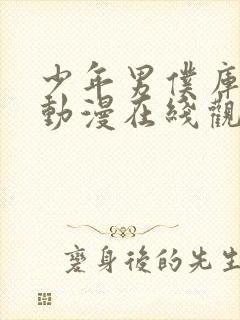 少年男僕庫
動漫在綫觀
變身後的先生